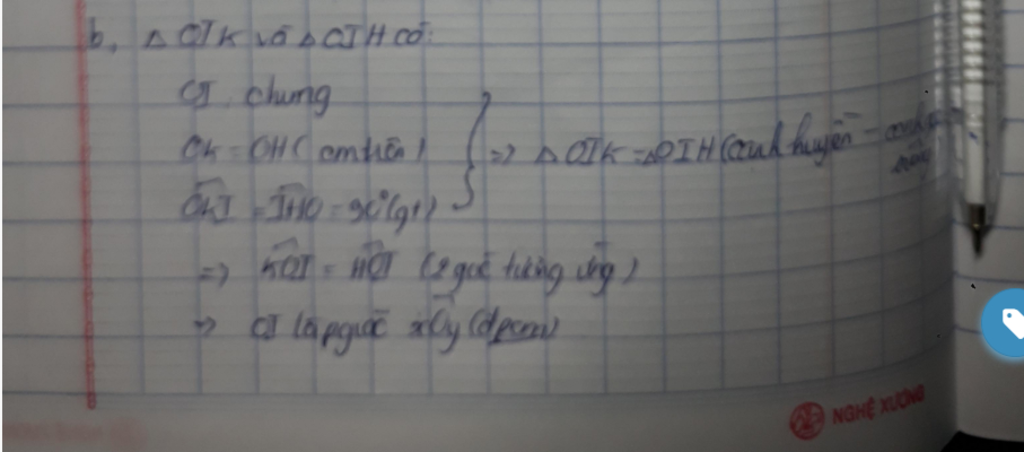 b, △ OIK và △ OIH có:
OI chung
OK = OH (cmtrên)
=> △ OIK = △ OIH (cạnh huyền -
OKI = IHO = 90° (gt)
=> KOI = HOI (2 góc tương ứng)
=> OI là pgiác xOy (đpcm)
NGHỆ XƯƠNG